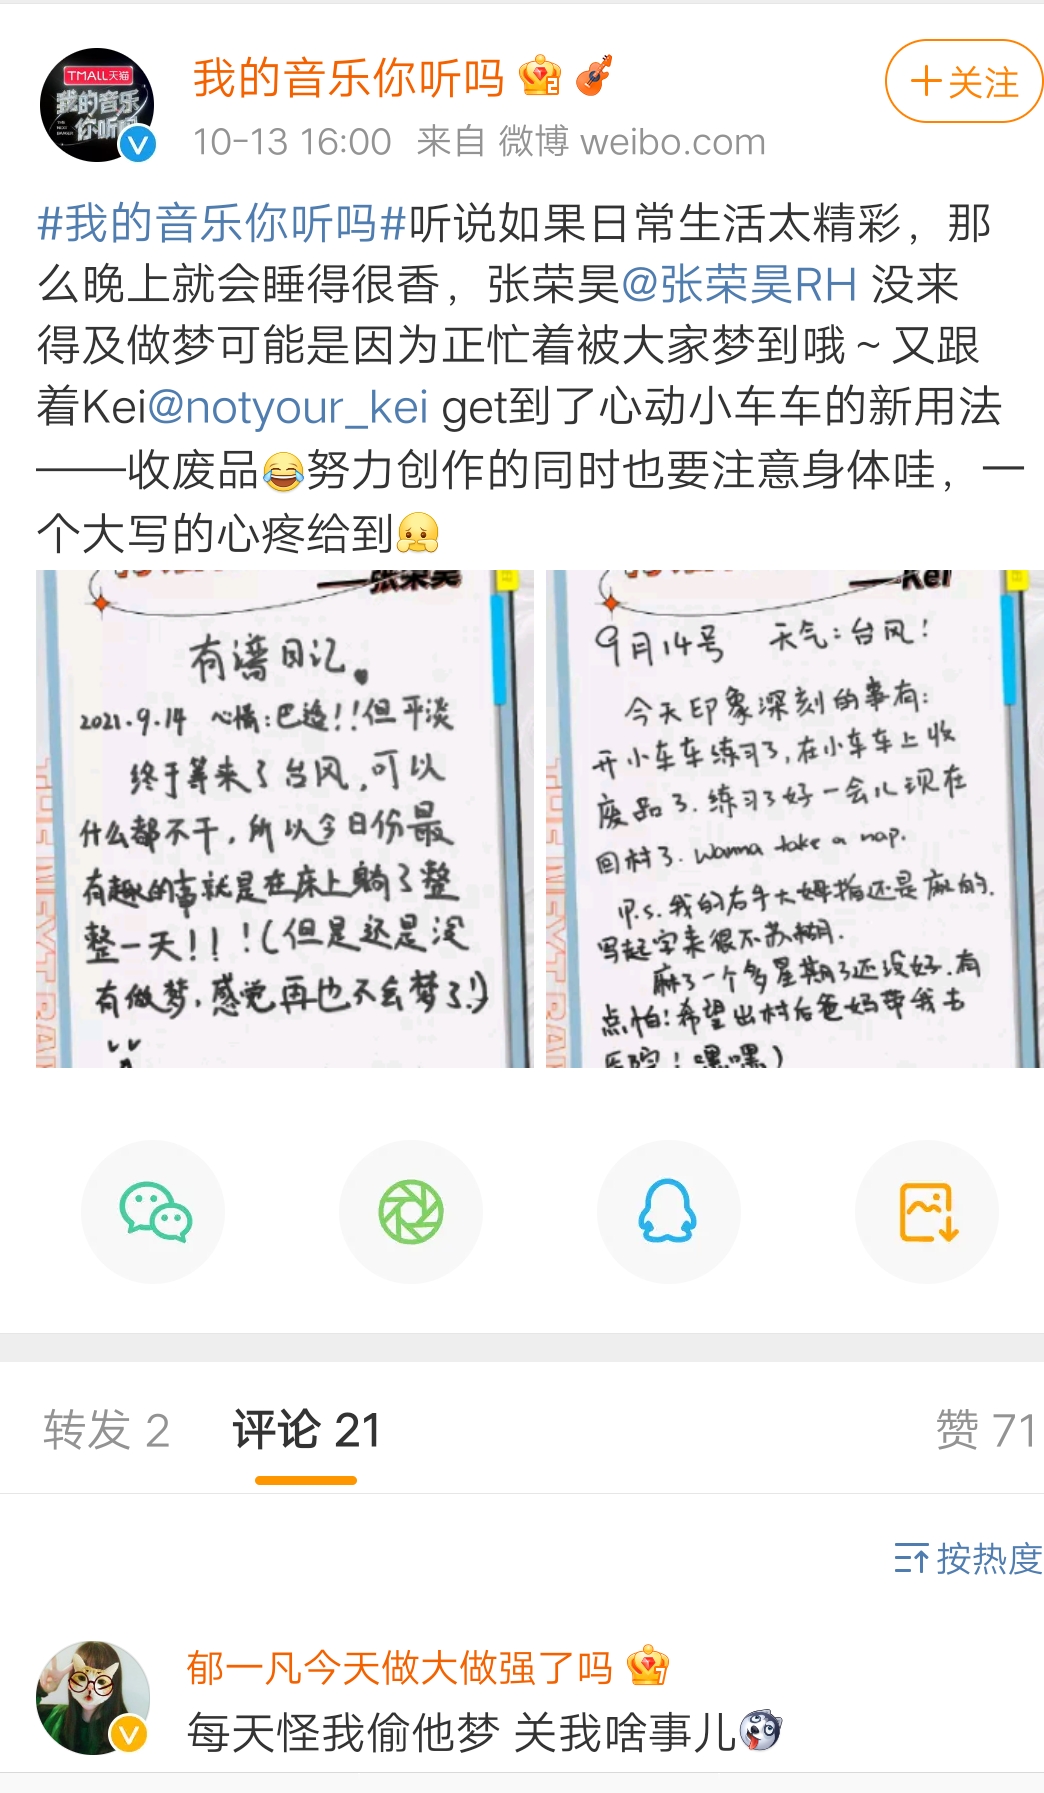 TMALL天猫
我的音乐
你听吗
我的音乐你听吗
2
+关注
10-13 16:00 来自 微博 weibo.com
#我的音乐你听吗#听说如果日常生活太精彩，那
么晚上就会睡得很香，张荣昊@张荣昊RH 没来
得及做梦可能是因为正忙着被大家梦到哦~又跟
着Kei@notyour_kei get到了心动小车车的新用法
——收废品😂努力创作的同时也要注意身体哇，一
个大写的心疼给到
——张荣昊
有谱日记。
2021.9.14 心情：巴适！！但平淡
终于等来了台风，可以
什么都不干，所以今日份最
有趣的事就是在床上躺了整
整一天！！！（但是还是没
有做梦，感觉再也不会梦了！）
——Kei
9月14号 天气：台风！
今天印象深刻的事有：
开小车车练习了，在小车车上收
废品了．练习了好一会儿现在
回村了．wanna take a nap.
P.s. 我的右手大姆指还是麻的．
写起字来很不苏糊．
麻了一个多星期了还没好．有
点怕！希望出村后爸妈带我去
医院！嘿嘿）
转发 2 评论 21 赞 71
按热度
郁一凡今天做大做强了吗
7
每天怪我偷他梦 关我啥事儿